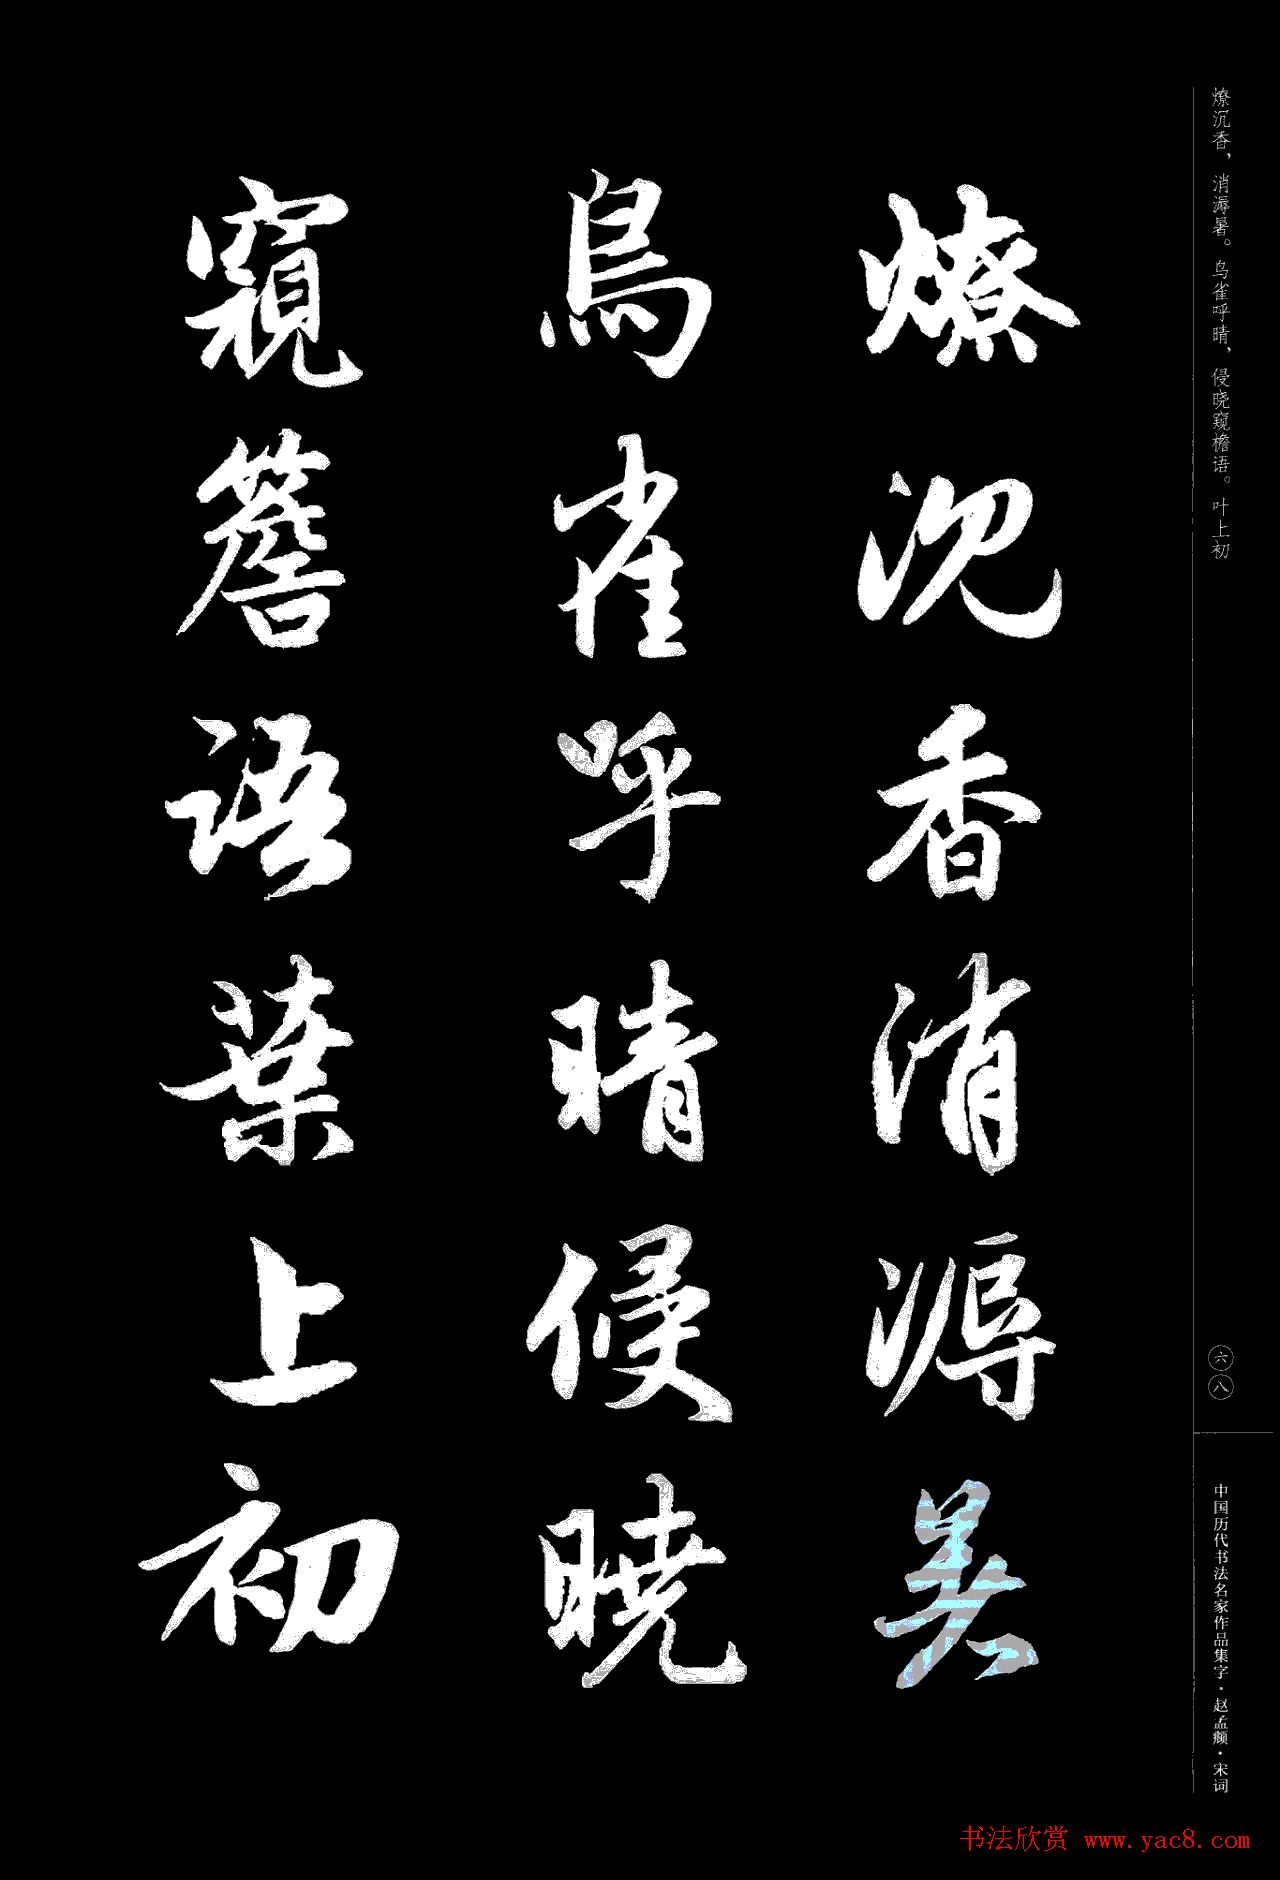 燎沉香，消溽暑。鸟雀呼晴，侵晓窥檐语。叶上初
燎沉香消溽暑
鳥雀呼晴侵曉
窺簷語葉上初
六八
中国历代书法名家作品集字·赵孟頫·宋词
书法欣赏 www.yac8.com